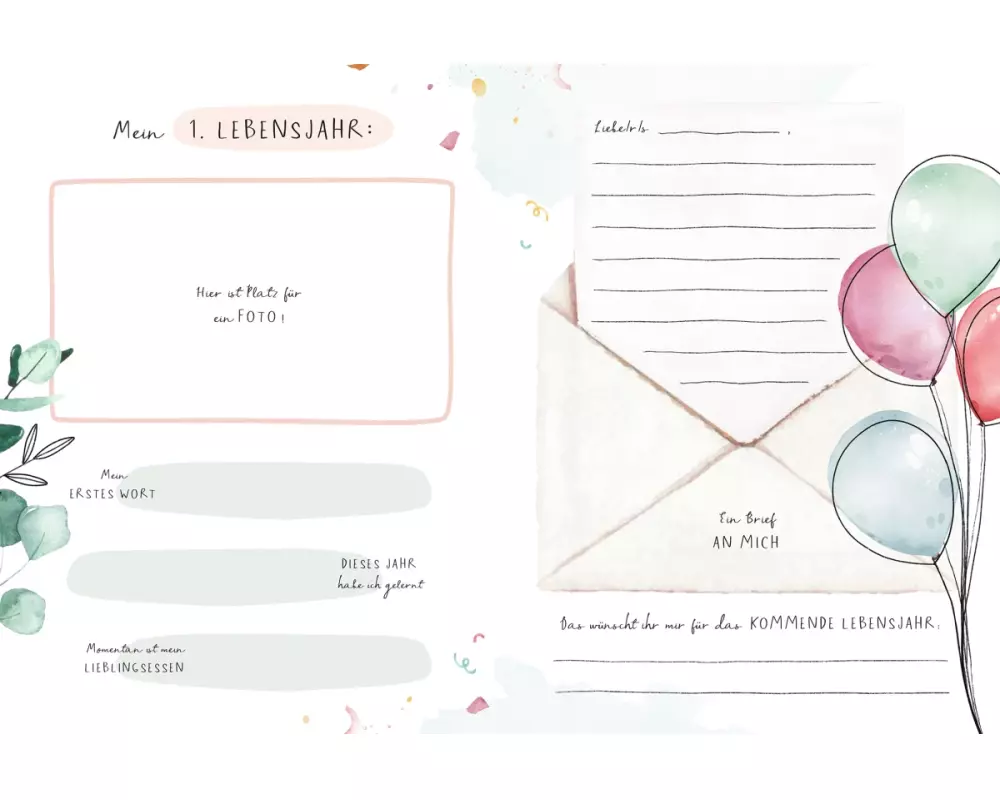 Mein 1. LEBENSJAHR:
Hier ist Platz für
ein FOTO!
Mein
ERSTES WORT
DIESES JAHR
habe ich gelernt
Momentan ist mein
LIEBLINGSESSEN
Liebe/r/s ____________ ,
Ein Brief
AN MICH
Das wünscht ihr mir für das KOMMENDE LEBENSJAHR: